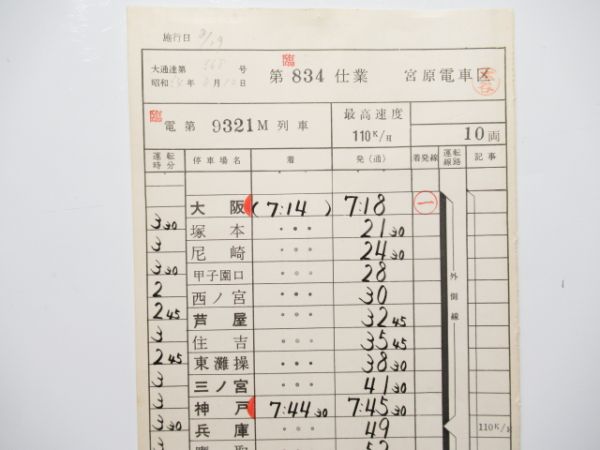 施行日 8/29
大通達第 568 号
昭和 年 月 日
臨
第 834 仕業 宮原電車区
臨 電第 9321M 列車 最高速度 110K/H 10両
運転時分 停車場名 着 発(通) 着発線 運転線路 記事
大阪 (7:14) 7:18 一
3 30
塚本 ・・・ 21 30
3
尼崎 ・・・ 24 30
3 30
甲子園口 ・・・ 28
2
西ノ宮 ・・・ 30
2 45
芦屋 ・・・ 32 45
3
住吉 ・・・ 35 45
2 45
東灘操 ・・・ 38 30
3
三ノ宮 ・・・ 41 30
3
神戸 7:44 30 7:45 30
3 30
兵庫 ・・・ 49
外側線
110K/H
3
鷹取 52